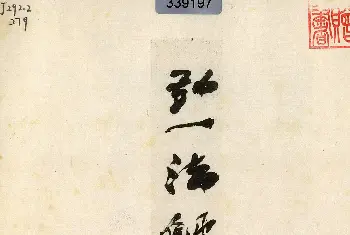 J292.2
279
339197
弘一法師